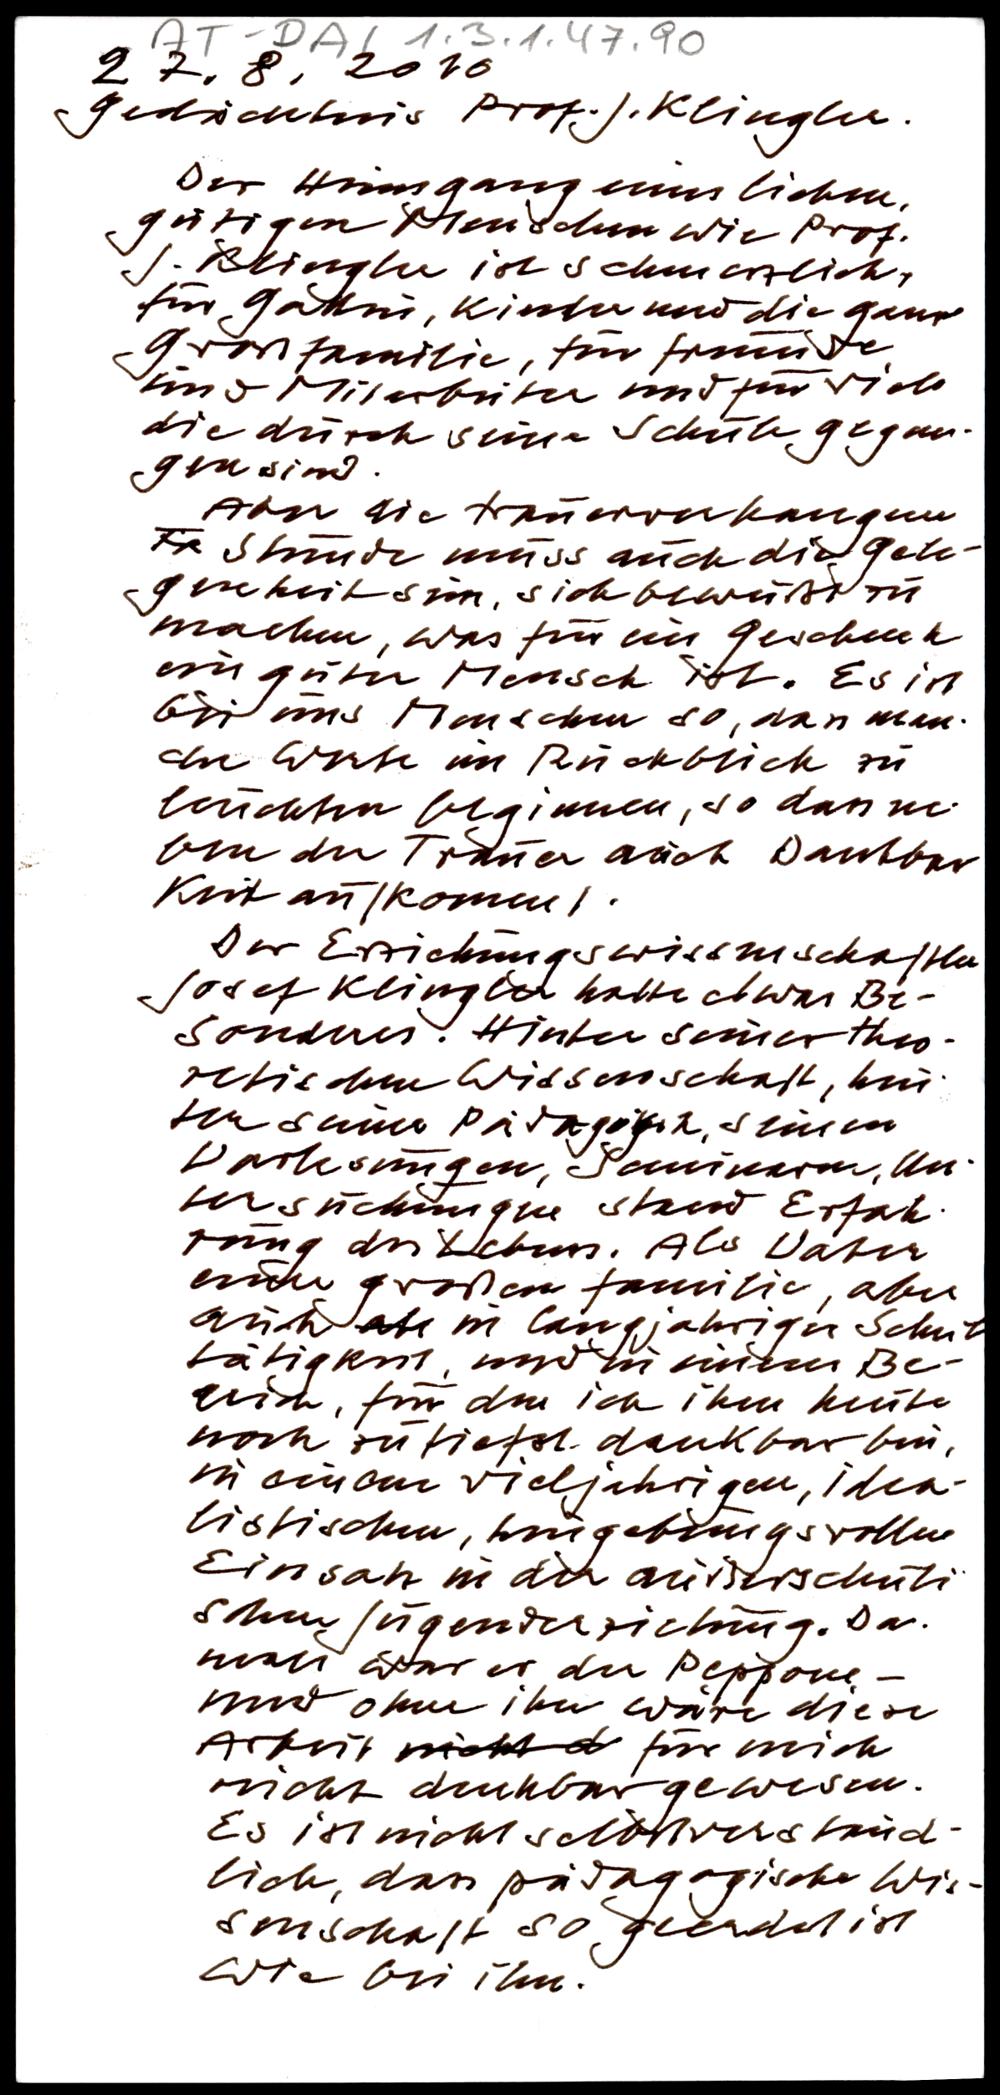 AT-DAI 1.3.1.47.90
27.8.2010
Gedächtnis Prof. J. Klingler.
Der Heimgang eines lieben,
gütigen Menschen wie Prof.
J. Klingler ist schmerzlich,
für Gattin, Kinder und die ganze
Großfamilie, für Freunde
und Mitarbeiter und für viele
die durch seine Schule gegan-
gen sind.
Aber die trauerverhangene
Stunde muss auch die Gele-
genheit sein, sich bewußt zu
machen, was für ein Geschenk
ein guter Mensch ist. Es ist
bei uns Menschen so, dass man-
che Werte im Rückblick zu
leuchten beginnen, so dass ne-
ben der Trauer auch Dankbar
keit aufkommt.
Der Erziehungswissenschaftler
Josef Klingler hatte etwas Be-
sonderes. Hinter seiner theo-
retischen Wissenschaft, hin-
ter seiner Pädagogik, seinen
Vorlesungen, Seminaren, Un-
tersuchungen stand Erfah-
rung des Lebens. Als Vater
einer großen Familie, aber
auch in langjähriger Schul
tätigkeit, und in einem Be-
reich, für den ich ihm heute
noch zutiefst dankbar bin,
in einem vieljährigen, idea-
listischen, hingebungsvollen
Einsatz in der außerschuli
schen Jugenderziehung. Da-
mals war er der Peppone –
und ohne ihn wäre diese
Arbeit nicht d für mich
nicht denkbar gewesen.
Es ist nicht selbstverständ-
lich, dass pädagogische Wis-
senschaft so geerdet ist
wie bei ihm.